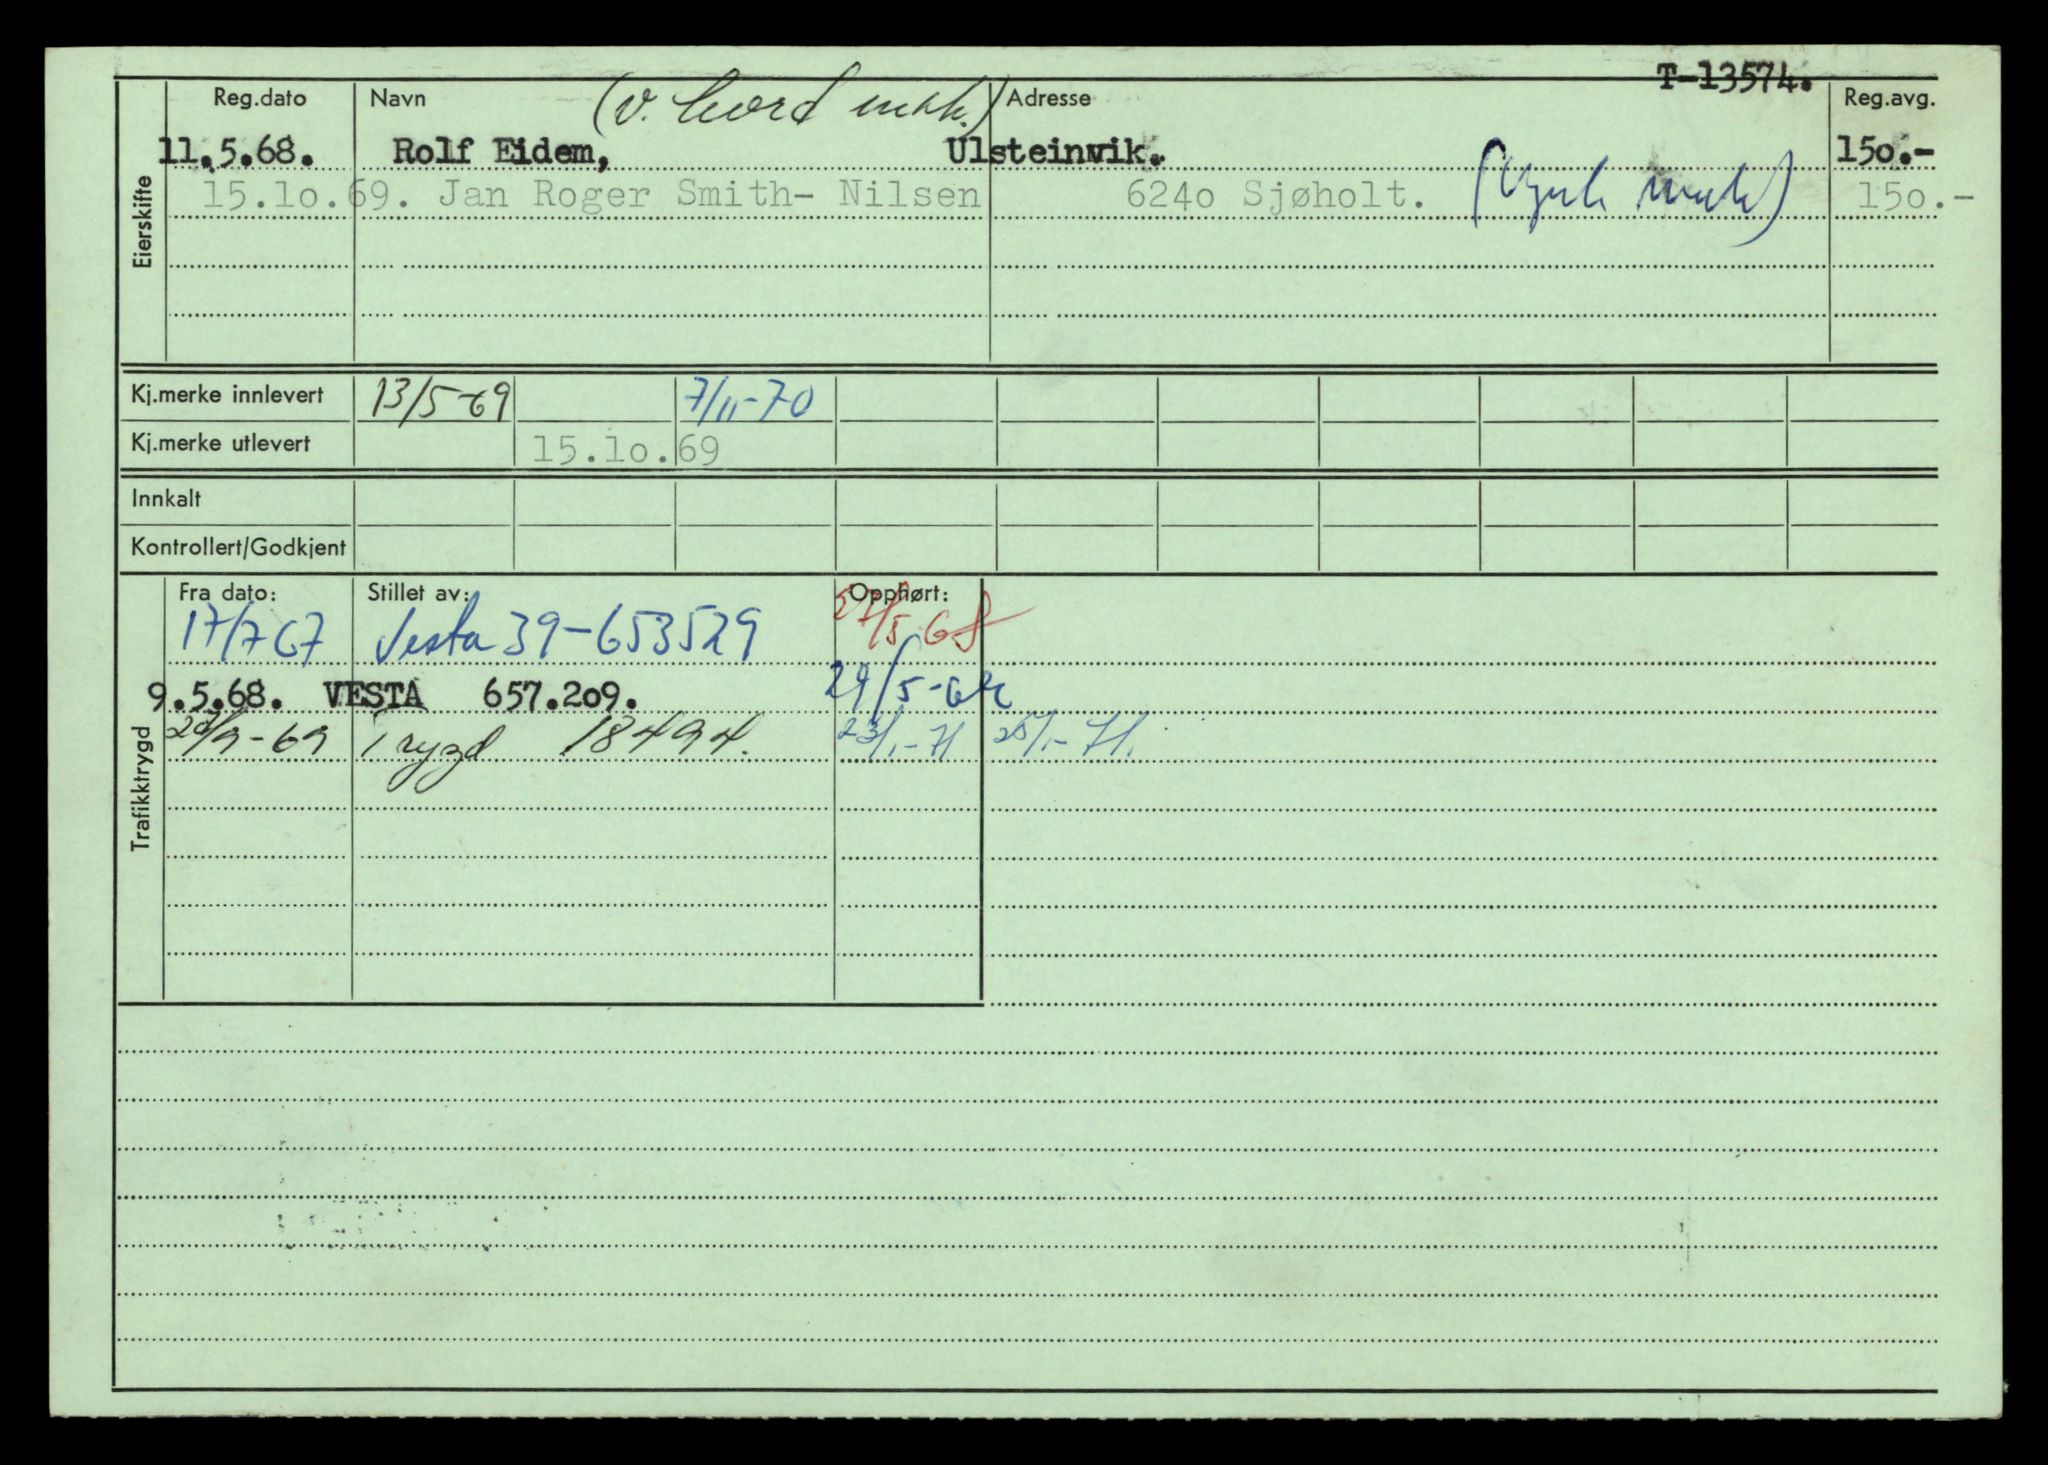 T-13574.
Reg.dato Navn Adresse Reg.avg.
(v.
11.5.68. Rolf Eidem, Ulsteinvik. 150.-
15.10.69. Jan Roger Smith- Nilsen 6240 Sjøholt. 150.-
Eierskifte
Kj.merke innlevert 13/5-69 7/11-70
Kj.merke utlevert 15.10.69
Innkalt
Kontrollert/Godkjent
Fra dato: Stillet av: Opphørt:
17/7 67 Vesta 39-653529 27/5-68
9.5.68. VESTA 657.209. 29/5-
/9-69 Trygd 18494. 23/1-71 25/1-71.
Trafikktrygd